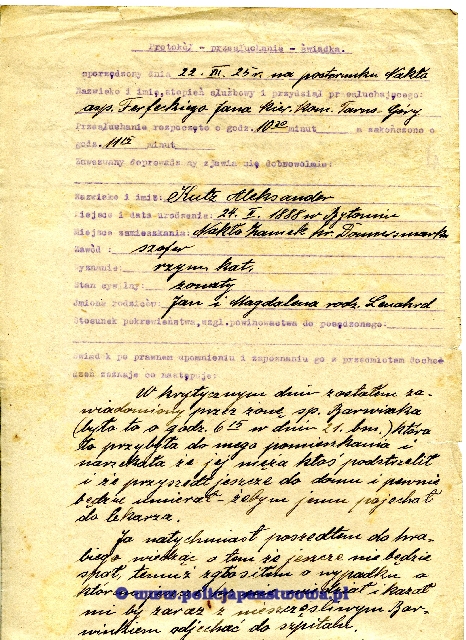 Protokół - przesłuchania - świadka.
sporządzony dnia 22. III. 25 r. na posterunku Nakło
Nazwisko i imię, stopień służbowy i przydział przesłuchującego:
asp. Ferfeckiego Jana kier. Kom. Tarn. Góry
Przesłuchanie rozpoczęto o godz. 10 20 minut a zakończono o
godz. 11 15 minut
Zawezwany doprowadzony zjawia się dobrowolnie:
Nazwisko i imię: Kutz Aleksander
Miejsce i data urodzenia: 24. X. 1888 w Bytomiu
Miejsce zamieszkania: Nakło Zamek hr. Donnersmarka
Zawód : szofer
Wyznanie: rzym. kat.
Stan cywilny: żonaty
Imiona rodziców: Jan i Magdalena rodz. Lenahrd
Stosunek pokrewieństwa, wzgl. powinowactwa do posądzonego:
Świadek po prawnem upomnieniu i zapoznaniu go z przedmiotem docho
dzeń zeznaje co następuje:
W krytycznym dniu zostałem za-
wiadomiony przez żonę, sp. Barwinka
(było to o godz. 6 15 w dniu 21. bm.) która
to przybyła do mego pomieszkania i
narzekała że jej męża ktoś podstrzelił
i że przyszedł jeszcze do domu i pewnie
będzie umierał - żebym jemu pojechał
do lekarza.
Ja natychmiast poszedłem do hra-
biego wiedząc o tem że jeszcze nie będzie
spał, temuż zgłosiłem o wypadku o
© www.policjapanstwowa.pl
mi by zaraz z nieszczęśliwym Bar-
winkiem odjechać do szpitala.